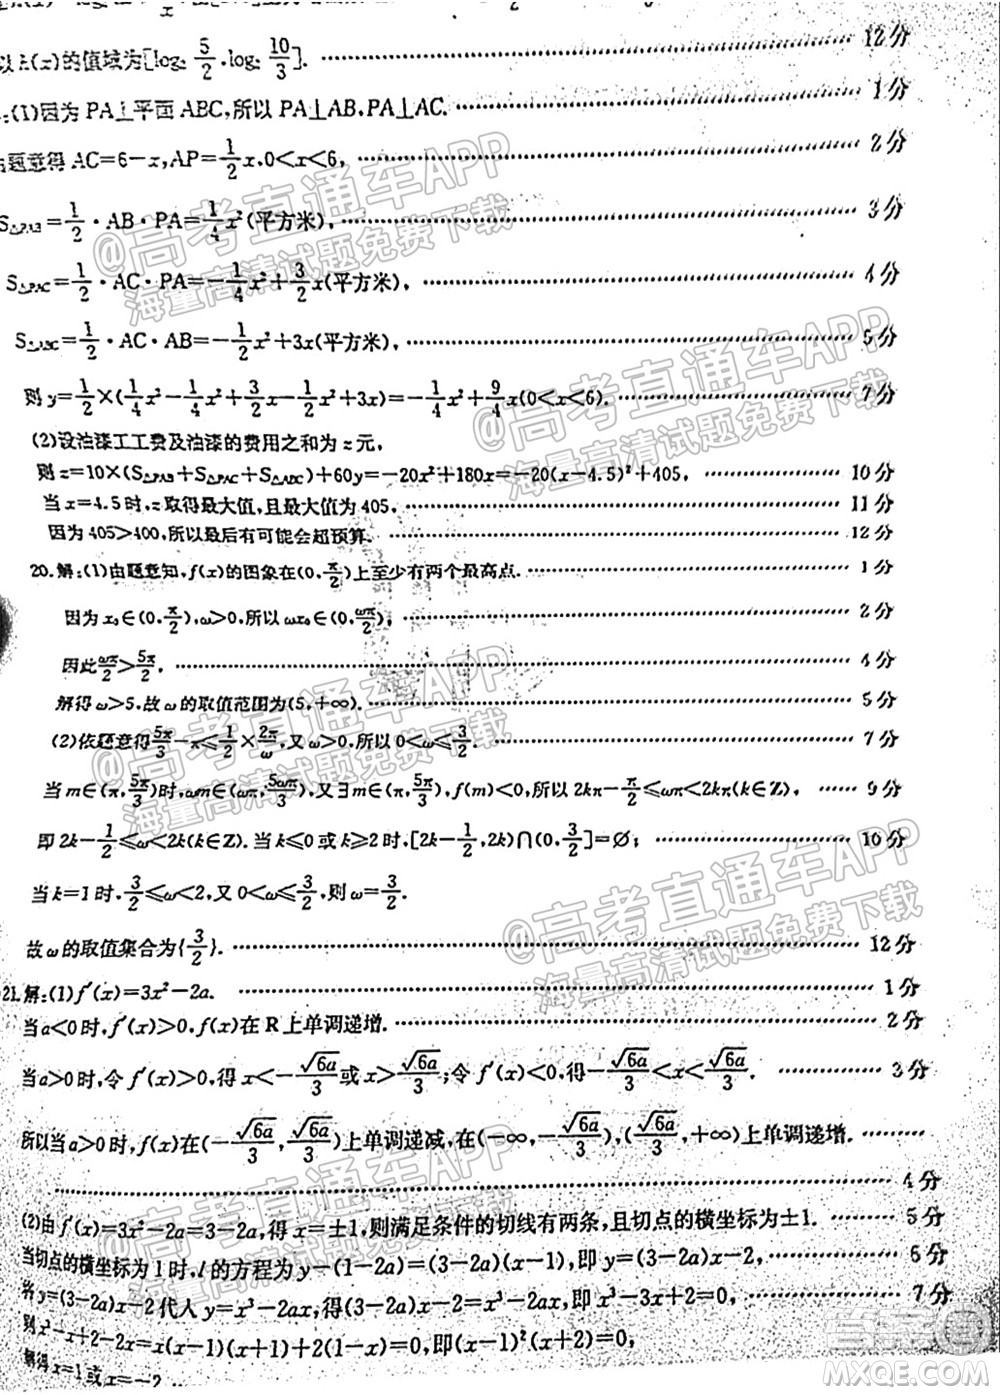 以f(x)的值域为[log₂ 5/2, log₂ 10/3]. ⋯⋯ 12分
:(1)因为PA⊥平面ABC,所以PA⊥AB,PA⊥AC. ⋯⋯ 1分
题意得AC=6-x,AP=1/2x,0<x<6, ⋯⋯ 2分
S△PAB=1/2·AB·PA=1/4x²(平方米), ⋯⋯ 3分
S△PAC=1/2·AC·PA=-1/4x²+3/2x(平方米), ⋯⋯ 4分
S△ABC=1/2·AC·AB=-1/2x²+3x(平方米), ⋯⋯ 5分
则y=1/2×(1/4x²-1/4x²+3/2x-1/2x²+3x)=-1/4x²+9/4x(0<x<6). ⋯⋯ 7分
(2)设油漆工工费及油漆的费用之和为z元,
则z=10×(S△PAB+S△PAC+S△ABC)+60y=-20x²+180x=-20(x-4.5)²+405, ⋯⋯ 10分
当x=4.5时,z取得最大值,且最大值为405, ⋯⋯ 11分
因为405>400,所以最后有可能会超预算. ⋯⋯ 12分
20.解:(1)由题意知,f(x)的图象在(0,π/2)上至少有两个最高点. ⋯⋯ 1分
因为x₀∈(0,π/2),ω>0,所以ωx₀∈(0,ωπ/2), ⋯⋯ 2分
因此ωπ/2>5π/2, ⋯⋯ 4分
解得ω>5,故ω的取值范围为(5,+∞). ⋯⋯ 5分
(2)依题意得5π/3-π≤1/2×2π/ω,又ω>0,所以0<ω≤3/2. ⋯⋯ 7分
当m∈(π,5π/3)时,ωm∈(ωπ,5ωπ/3),又∃m∈(π,5π/3),f(m)<0,所以2kπ-π/2≤ωπ<2kπ(k∈Z), ⋯⋯ 9分
即2k-1/2≤ω<2k(k∈Z).当k≤0或k≥2时,[2k-1/2,2k)∩(0,3/2]=∅; ⋯⋯ 10分
当k=1时,3/2≤ω<2,又0<ω≤3/2,则ω=3/2.
故ω的取值集合为{3/2}. ⋯⋯ 12分
21.解:(1)f′(x)=3x²-2a. ⋯⋯ 1分
当a<0时,f′(x)>0,f(x)在R上单调递增. ⋯⋯ 2分
当a>0时,令f′(x)>0,得x<-√6a/3或x>√6a/3;令f′(x)<0,得-√6a/3<x<√6a/3. ⋯⋯ 3分
所以当a>0时,f(x)在(-√6a/3,√6a/3)上单调递减,在(-∞,-√6a/3),(√6a/3,+∞)上单调递增. ⋯⋯
⋯⋯ 4分
(2)由f′(x)=3x²-2a=3-2a,得x=±1,则满足条件的切线有两条,且切点的横坐标为±1. ⋯⋯ 5分
当切点的横坐标为1时,l的方程为y-(1-2a)=(3-2a)(x-1),即y=(3-2a)x-2, ⋯⋯ 6分
将y=(3-2a)x-2代入y=x³-2ax,得(3-2a)x-2=x³-2ax,即x³-3x+2=0, ⋯⋯ 7分
则x³-x+2-2x=x(x-1)(x+1)+2(1-x)=0,即(x-1)²(x+2)=0,
解得x=1或x=-2
@高考直通车APP
海量高清试题免费下载
@高考直通车APP
海量高清试题免费下载
@高考直通车APP
海量高清试题免费下载
@高考直通车APP
海量高清试题免费下载
@高考直通车APP
海量高清试题免费下载
答案圈
MXQE.COM